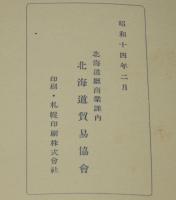 昭和十四年二月
北海道廳商業課内
北海道貿易協會
印刷・札幌印刷株式會社